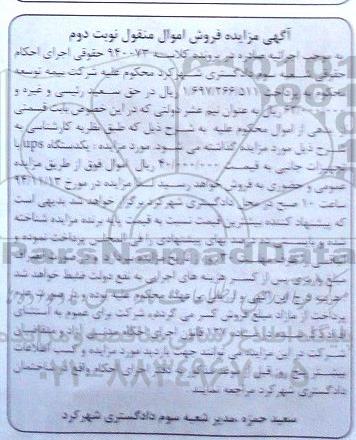 آگهی مزایده فروش اموال منقول نوبت دوم
به موجب اجرائیه صادره در پرونده کلاسه ۹۴۰۰۷۳ حقوقی اجرای احکام
حقوقی شعبه سوم دادگستری شهرکرد محکوم علیه شرکت بیمه توسعه
محکوم به پرداخت ۱.۶۹۷.۲۶۶.۵۱۱ ریال در حق سعید رئیسی و غیره و
ریال به عنوان نیم عشر دولتی که در این خصوص بابت قسمتی
از اموال محکوم علیه به شرح ذیل که طبق نظریه کارشناسی به
شرح ذیل مورد مزایده گذاشته می شود. مورد مزایده : یکدستگاه ups با
تجهیزات جانبی به قیمت ۴۰/۰۰۰/۰۰۰ ریال اموال فوق از طریق مزایده
عمومی و حضوری به فروش خواهد رسید. مزایده در مورخ ۹۴/۱۱/۱۳
ساعت ۱۰ صبح در محل دادگستری شهرکرد برگزار خواهد شد بدیهی است
که پیشنهاد کننده قیمت نسبت به قیمت پایه برنده مزایده شناخته
شده و بهای پیشنهادی را فی المجلس پرداخت نموده و
مبلغ واریزی پس از کسر هزینه های اجرایی به نفع دولت ضبط خواهد شد
ضمنا درج این آگهی و به عهده محکوم علیه بوده و در صورت عدم
پرداخت از مازاد مبلغ فروش کسر می گردد. شرکت برای عموم به استثنای
ماده ۱۲۷ قانون اجرای احکام مدنی آزاد و متقاضیان
شرکت در این مزایده می توانند جهت بازدید مورد مزایده و کسب اطلاعات
بیشتر روز قبل به دفتر اجرای احکام واقع در ساختمان
شهرکرد مراجعه نمایند.
سعید حمزه .مدیر شعبه سوم دادگستری شهرکرد
ParsNamadData
۰۲۱-۸۸۳۴۹۶۷۰-۵